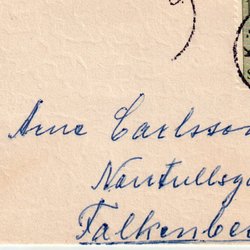 Arne Carlsson
Nantullsg
Falkenbe